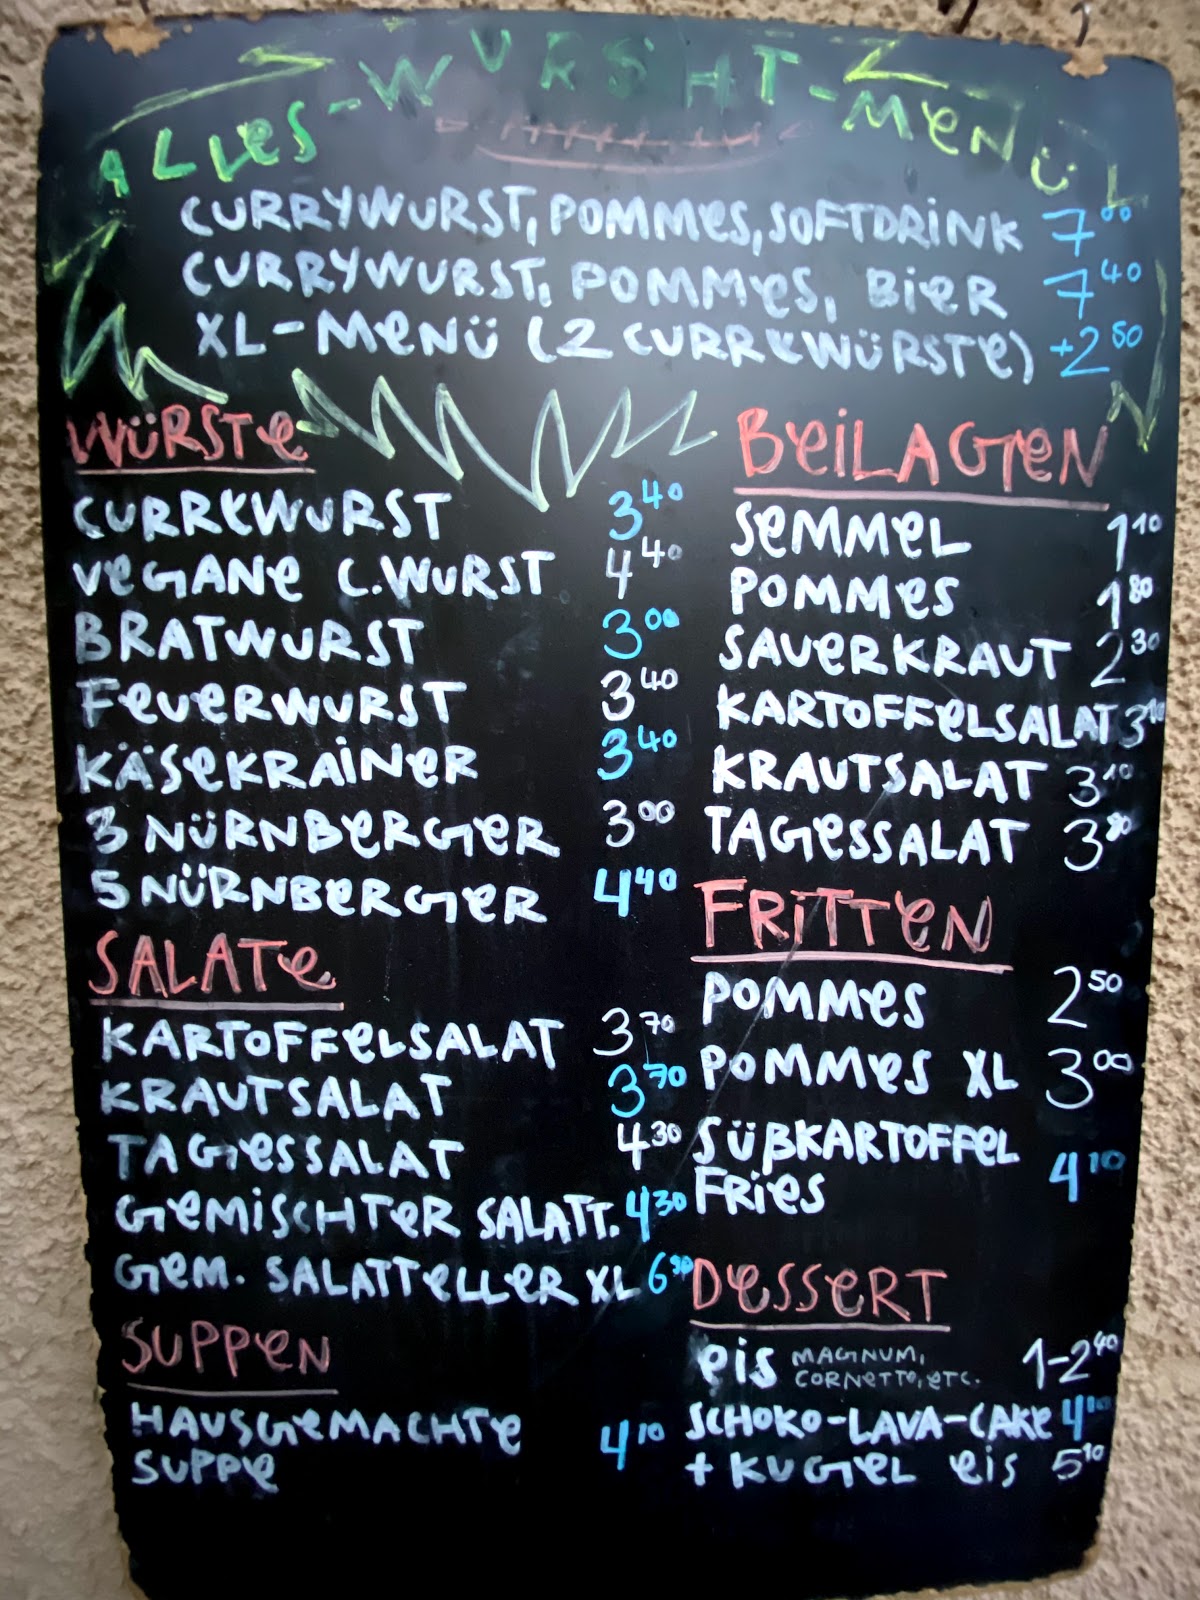 ALLES-WURSHT-MENÜ
CURRYWURST, POMMES, SOFTDRINK 7 00
CURRYWURST, POMMES, BIER 7 40
XL-MENÜ (2 CURRYWÜRSTE) +2 50
WÜRSTE
CURRYWURST 3 40
VEGANE C.WURST 4 40
BRATWURST 3 00
FEUERWURST 3 40
KÄSEKRAINER 3 40
3 NÜRNBERGER 3 00
5 NÜRNBERGER 4 40
SALATE
KARTOFFELSALAT 3 70
KRAUTSALAT 3 70
TAGESSALAT 4 30
GEMISCHTER SALATT. 4 30
GEM. SALATTELLER XL 6 90
SUPPEN
HAUSGEMACHTE 4 10
SUPPE
BEILAGEN
SEMMEL 1 10
POMMES 1 80
SAUERKRAUT 2 30
KARTOFFELSALAT 3 10
KRAUTSALAT 3 10
TAGESSALAT 3 80
FRITTEN
POMMES 2 50
POMMES XL 3 00
SÜßKARTOFFEL
FRIES 4 10
DESSERT
EIS MAGNUM, 1-2 40
CORNETTO, ETC.
SCHOKO-LAVA-CAKE 4 10
+ KUGEL EIS 5 10